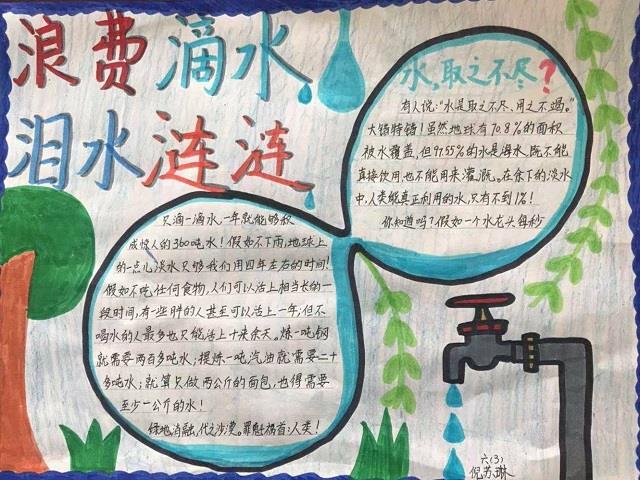 浪费滴水
泪水涟涟
水,取之不尽?
有人说:"水是取之不尽、用之不竭。"
大错特错!虽然地球有70.8%的面积
被水覆盖,但97.55%的水是海水,既不能
直接饮用,也不能用来灌溉。在余下的淡水
中,人类能真正利用的水,只有不到1%!
你知道吗?假如一个水龙头每秒
只滴一滴水,一年就能够积
成惊人的360吨水!假如不下雨,地球上
的一点儿淡水只够我们用四年左右的时间!
假如不吃任何食物,人们可以活上相当长的一
段时间,有一些胖的人甚至可以活上一年;但不
喝水的人最多也只能活上十来余天。炼一吨钢
就需要两百多吨水;提炼一吨汽油就需要二十
多吨水;就算只做两公斤的面包,也得需要
至少一公斤的水!
绿地消融,代之沙漠。罪魁祸首:人类!
六(3)
倪苏琳